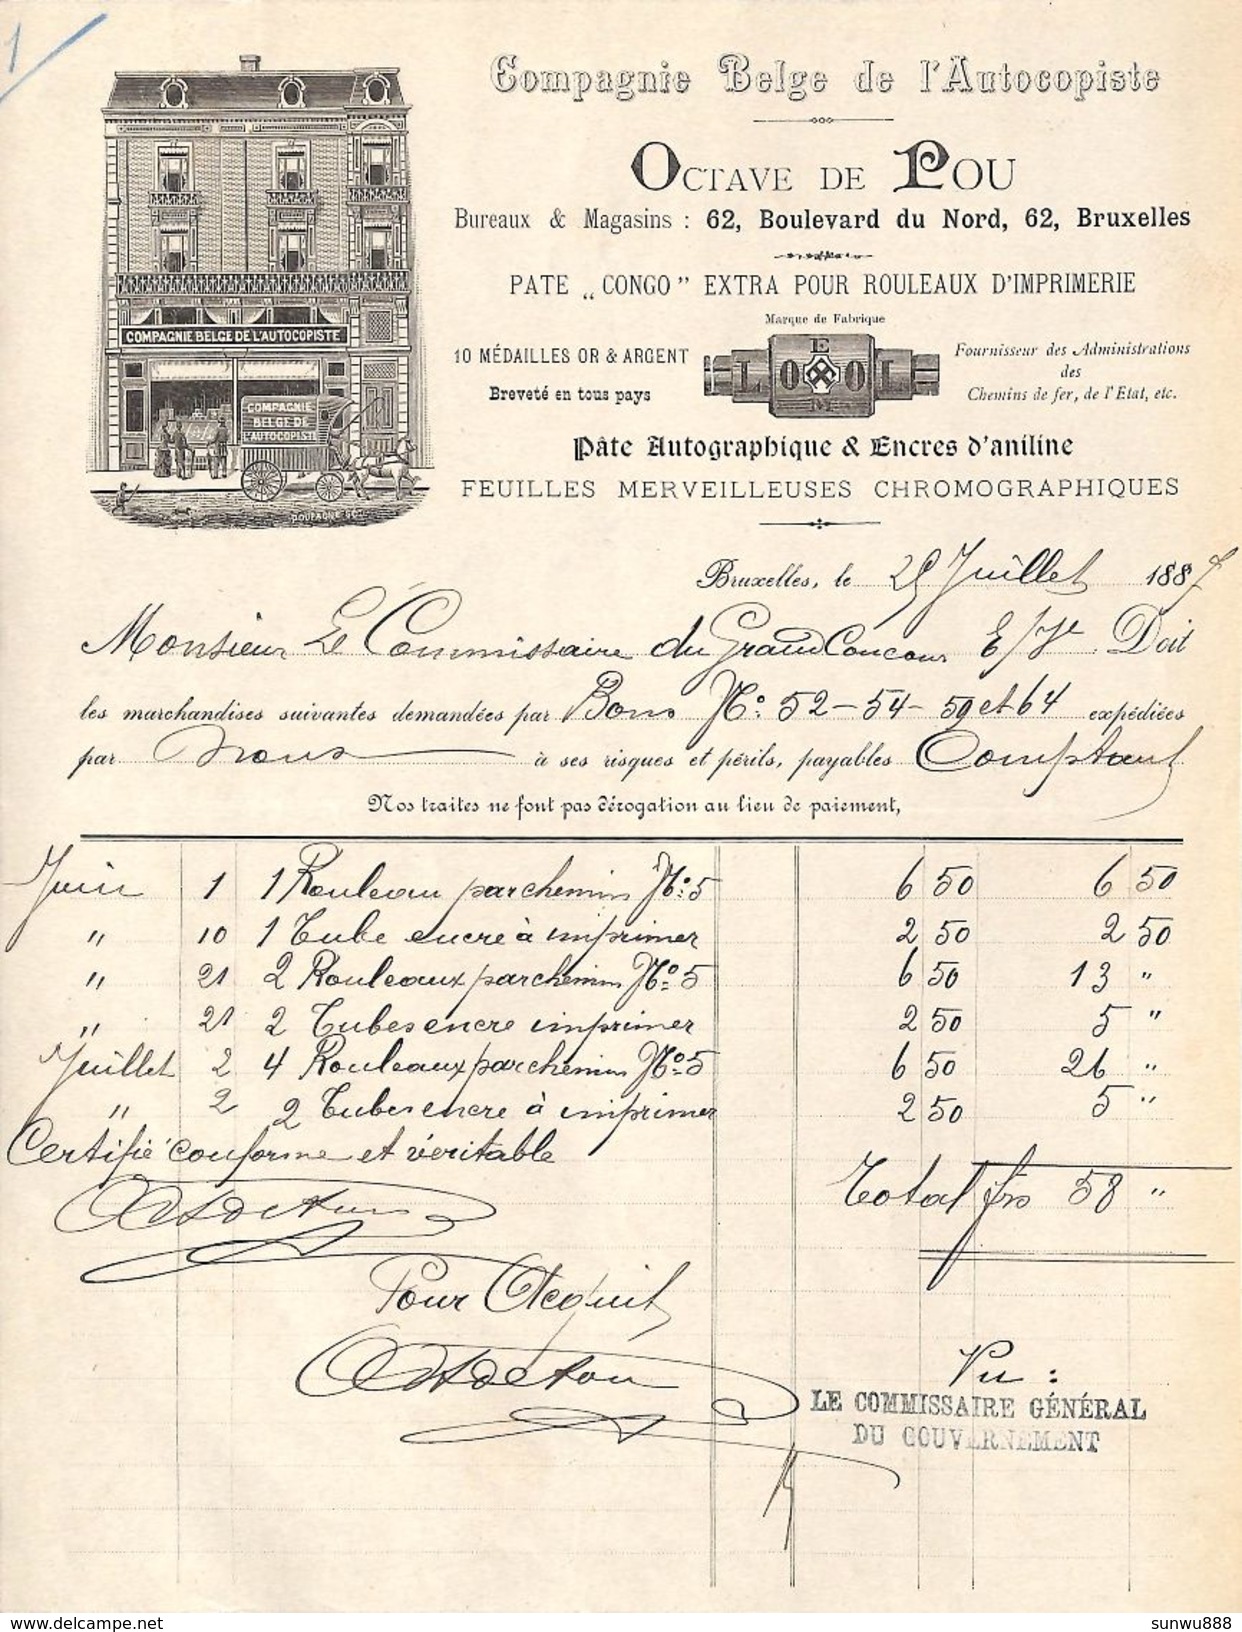 1
Compagnie Belge de l'Autocopiste
Octave de Pou
Bureaux & Magasins : 62, Boulevard du Nord, 62, Bruxelles
PATE „ CONGO " EXTRA POUR ROULEAUX D'IMPRIMERIE
Marque de Fabrique
10 MÉDAILLES OR & ARGENT
Breveté en tous pays
LOXOL
E
M
Fournisseur des Administrations
des
Chemins de fer, de l'Etat, etc.
Pâte Autographique & Encres d'aniline
FEUILLES MERVEILLEUSES CHROMOGRAPHIQUES
COMPAGNIE BELGE DE L'AUTOCOPISTE
COMPAGNIE
BELGE DE
L'AUTOCOPISTE
Bruxelles, le Juillet 1887
Monsieur Le Commissaire du Grand Concours Doit
les marchandises suivantes demandées par Bons No: 52-54-59 et 64 expédiées
par nous à ses risques et périls, payables Comptant
Nos traites ne font pas dérogation au lieu de paiement,
Juin 1 1 Rouleau parchemin No: 5 6 50 6 50
" 10 1 Tube encre à imprimer 2 50 2 50
" 21 2 Rouleaux parchemin No: 5 6 50 13 "
" 21 2 Tubes encre imprimer 2 50 5 "
Juillet 2 4 Rouleaux parchemin No: 5 6 50 26 "
" 2 2 Tubes encre à imprimer 2 50 5 "
Certifié conforme et véritable
Total frs 58 "
Pour Acquit
Vu :
LE COMMISSAIRE GÉNÉRAL
DU GOUVERNEMENT
sunwu888
https://www.delcampe.net